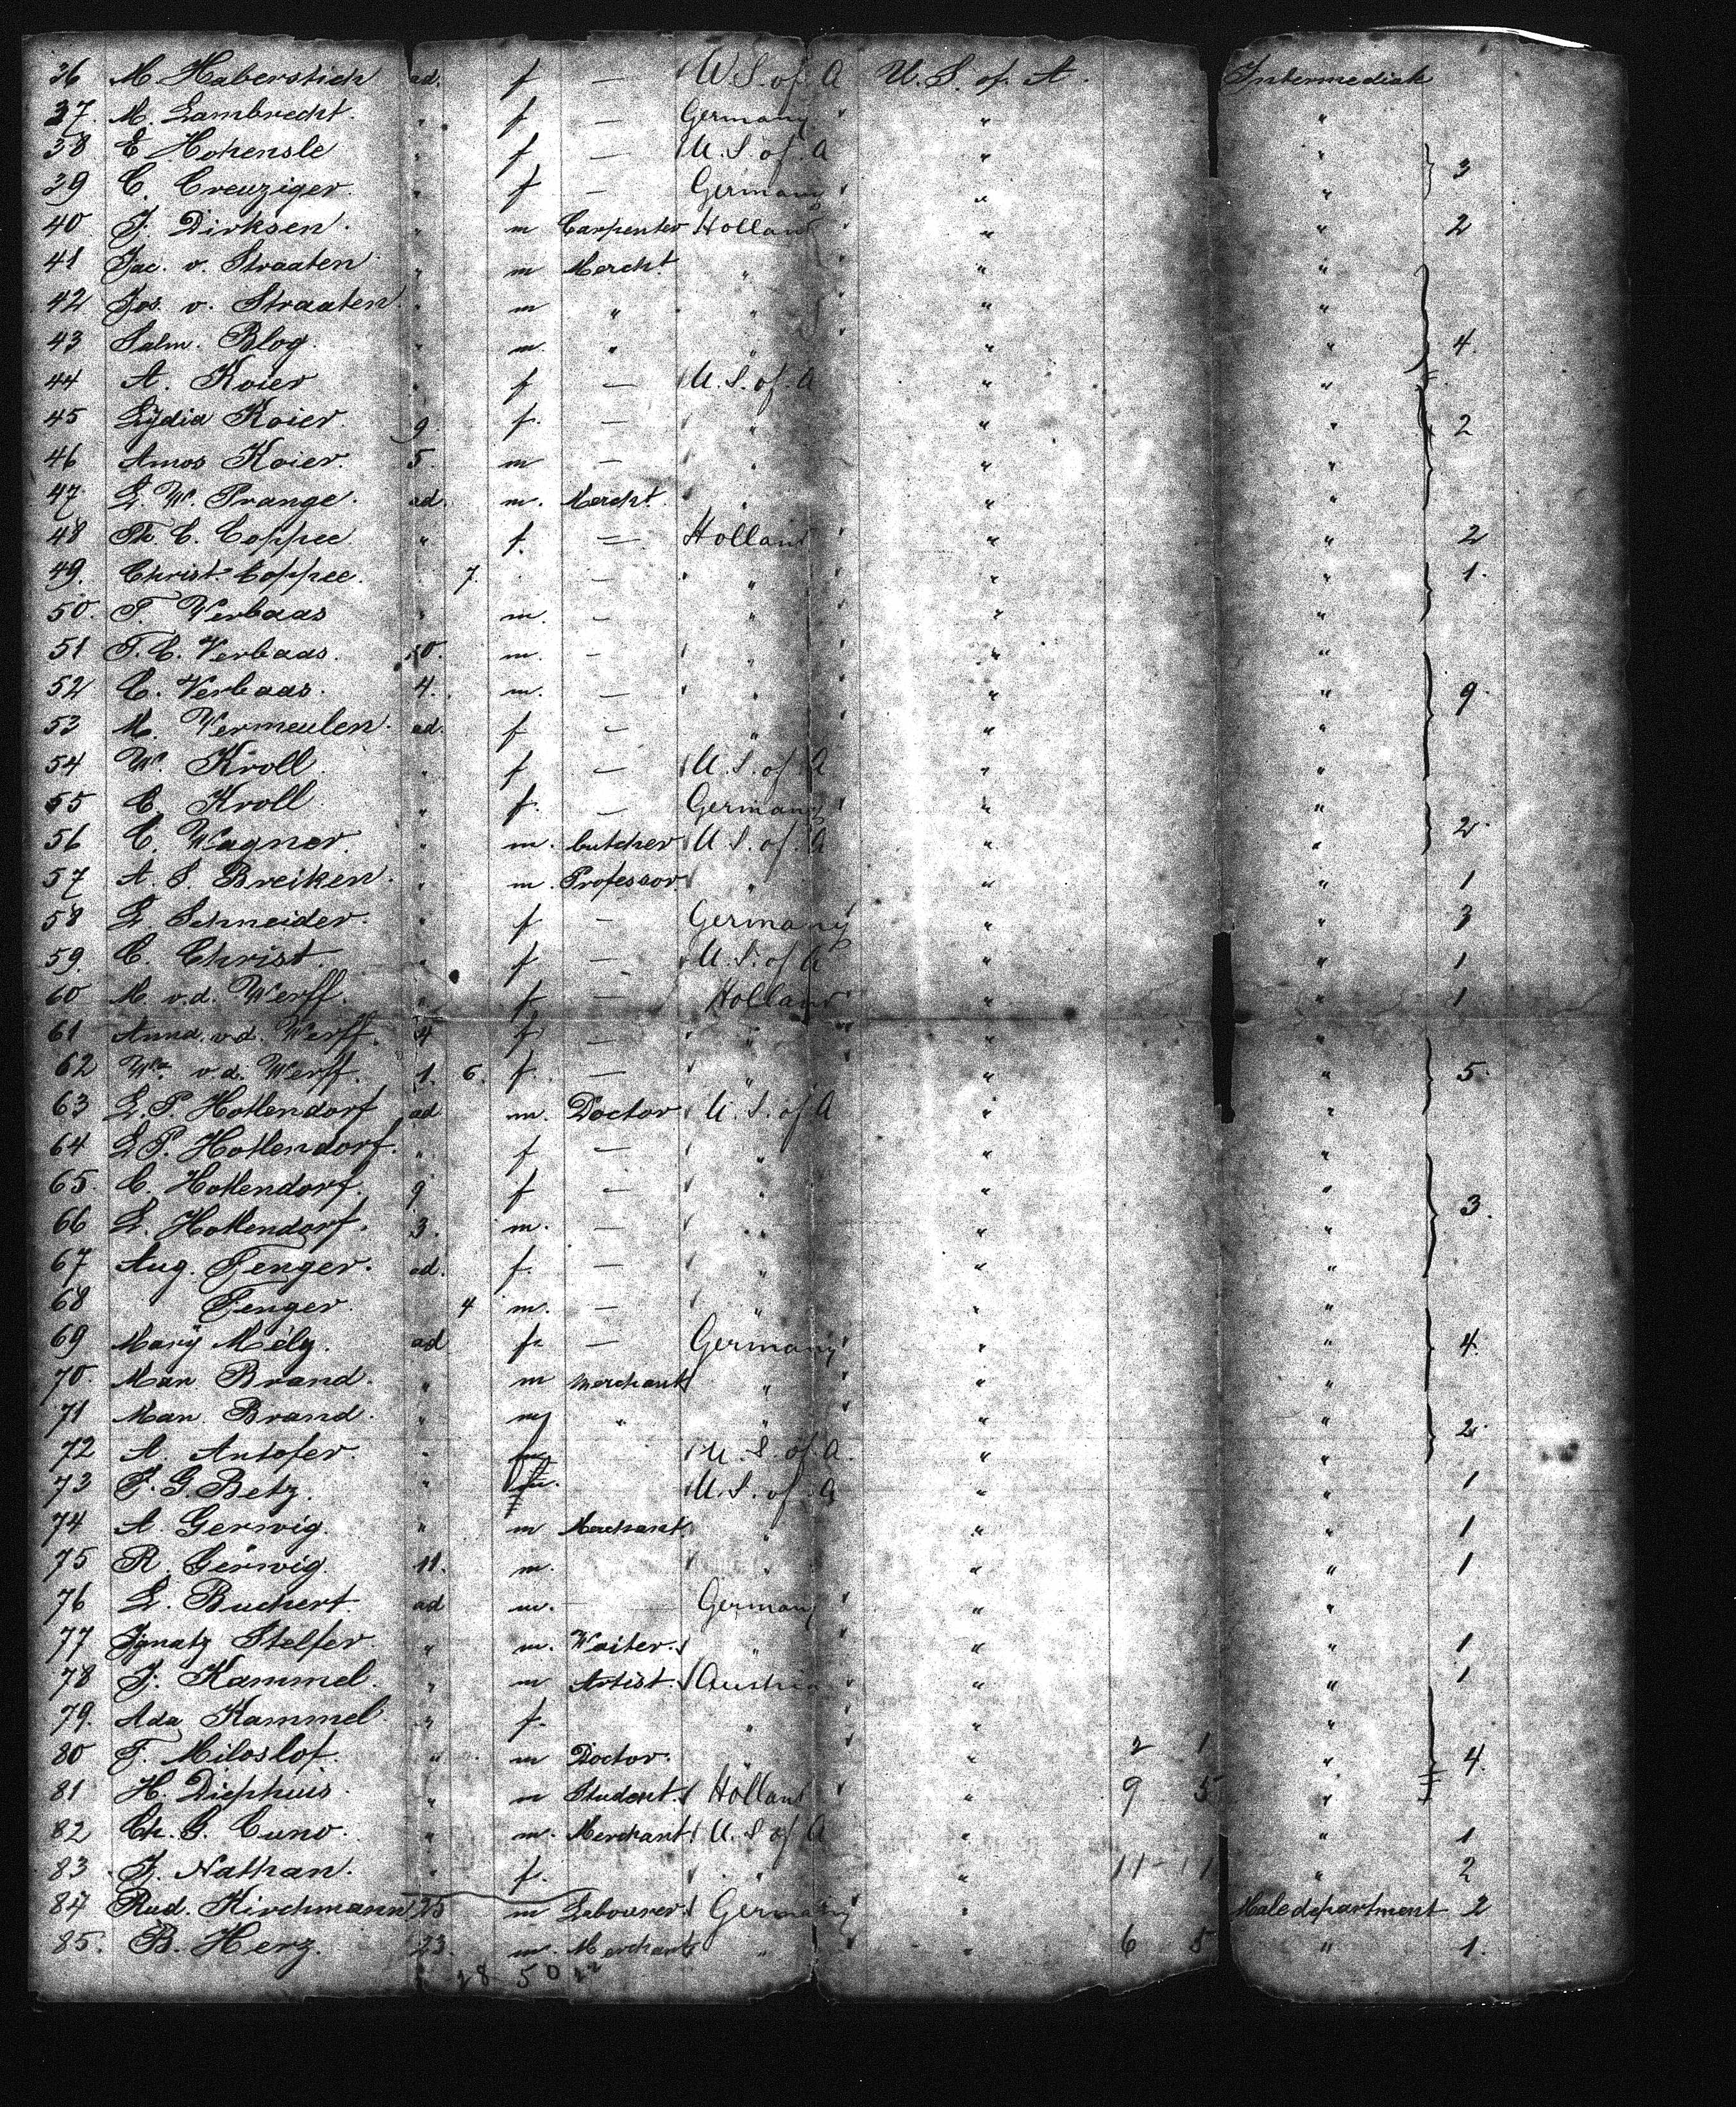 36 M. Haberstich ad. f — U.S. of A U.S. of A. Intermediate
37 M. Lambrecht. " f — Germany " "
38 E Hohensle " f — U.S. of A " "
39 C. Creuziger. " f — Germany " " 3
40 J. Dirksen. " m Carpenter Holland " " 2
41 Jac. v. Straaten " m Mercht. " " "
42 Jos. v. Straaten. " m " " " "
43 Salm. Blog. " m. " " " " 4.
44 A. Koier " f — U.S. of A " "
45 Lydia Koier. 9. f. — " " " 2
46 Amos Koier. 5. m — " " "
47 L. W. Prange. ad. m. Mercht. " " "
48 Th. C. Coppee " f. — Holland " " 2
49. Christ. Coppee. 7. — " " " 1.
50. T. Verbaas " m. — " " "
51 T. C. Verbaas. 10. m. — " " "
52 C. Verbaas. 4. m. — " " " 9.
53 M. Vermeulen. ad. f — " " "
54 W. Kroll. " f — U.S. of A " "
55 C. Kroll " f. — Germany " "
56 C. Wagner. " m. butcher U.S. of A " " 2.
57 A. S. Breiken. " m. Professor. " " " 1
58 L. Schneider. " f — Germany " " 3
59. C. Christ. " f — U.S. of A " " 1
60 M. v.d. Werff. " f — Holland " " 1
61 Anna. v.d. Werff. 4 f — " " "
62 Wa. v.d. Werff. 1. 6. f. — " " " 5.
63 L. P. Hottendorf ad m. Doctor U.S. of A " "
64 L P. Hottendorf. " f — " " "
65. C. Hottendorf. 9 f — " " "
66 L. Hottendorf. 3. m. — " " " 3.
67 Aug. Fenger. ad. f. — " " "
68 Fenger. 4 m. — " " "
69 Mary Mély. ad f. — Germany " " 4.
70. Man Brand. " m merchant " " "
71 Man Brand. " m " " " " 2.
72 A. Antofer. " U.S. of A. " "
73 F. G. Betz. " U.S. of A " " 1
74 A. Gerwig. " m Merchant. " " " 1
75 R. Gerwig. 11. m. " " " 1
76 L. Buchert. ad m. — Germany " "
77 Ignatz Stelfer " m. Waiter. " " " 1.
78 J. Kammel. " m Artist. Austria " " 1
79. Ada Kammel. " f. " " "
80 F. Miloslof. " m Doctor. " " 2 1 " 4.
81 H. Diephuis. " m Student. Holland " 9 5 "
82 Ch. G. Cuno. " m. Merchant U.S of A " " 1
83 J. Nathan. " f. " " 11 - 11 " 2
84 Rud. Kirchmann 25 m Labourer Germany " Maledepartment 2
85. B. Herz. 23. m. Merchant " " 6 5 " 1.
28 50 22